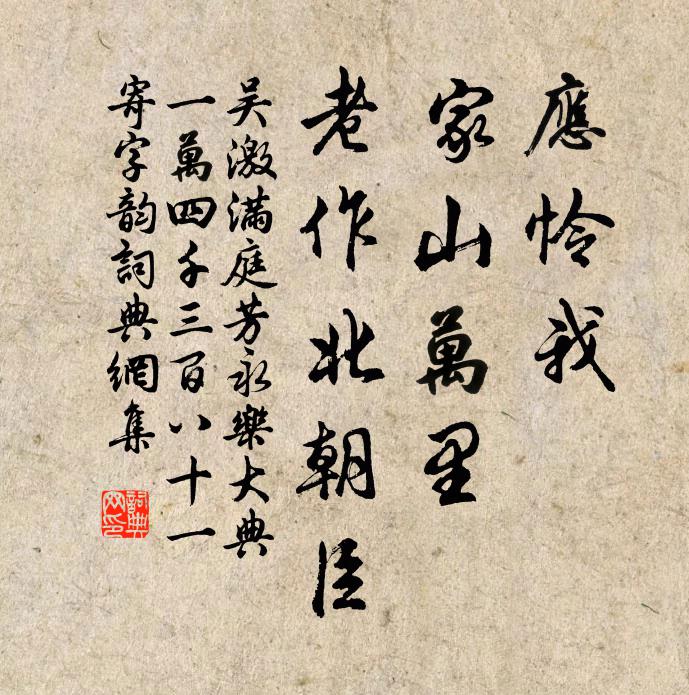 應怜我
家山萬里
老作北朝臣
吴激滿庭芳永樂大典
一萬四千三百八十一
寄字韵詞典網集
詞典网印